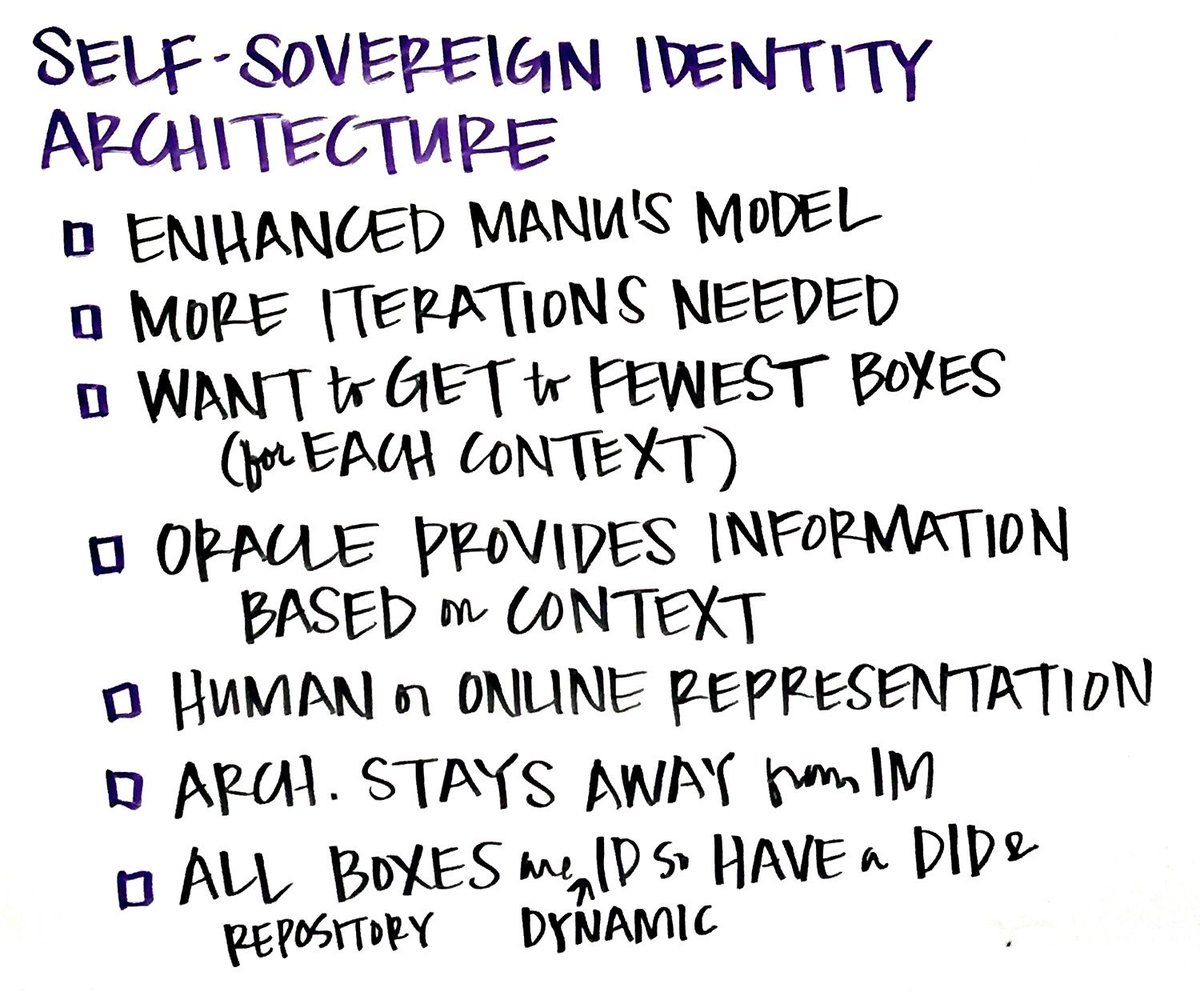 SELF-SOVEREIGN IDENTITY
ARCHITECTURE
ENHANCED MANU'S MODEL
MORE ITERATIONS NEEDED
WANT to GET to FEWEST BOXES
(for EACH CONTEXT)
ORACLE PROVIDES INFORMATION
BASED on CONTEXT
HUMAN or ONLINE REPRESENTATION
ARCH. STAYS AWAY from IM
ALL BOXES are ID so HAVE a DID &
REPOSITORY DYNAMIC